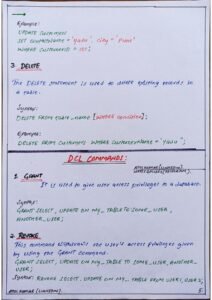 Example:
UPDATE Customers
SET ContactName = 'Yashu', City = 'Pune'
WHERE CustomerID = 101;
3. DELETE
The DELETE statement is used to delete existing records in
a table.
Syntax:
DELETE FROM table_name [WHERE condition];
Example:
DELETE FROM Customers WHERE CustomerName = 'Yashu';
DCL COMMANDS:
1. GRANT
It is used to give user access privileges to a database.
Syntax:
GRANT SELECT, UPDATE ON MY_TABLE TO SOME_USER,
ANOTHER_USER;
2. REVOKE
This command withdraws the user's access privileges given
by using the GRANT command.
GRANT SELECT, UPDATE ON MY_TABLE TO SOME_USER, ANOTHER_
USER;
Syntax: REVOKE SELECT, UPDATE ON MY_TABLE FROM USER1, USER2;
(LINKEDIN)
5